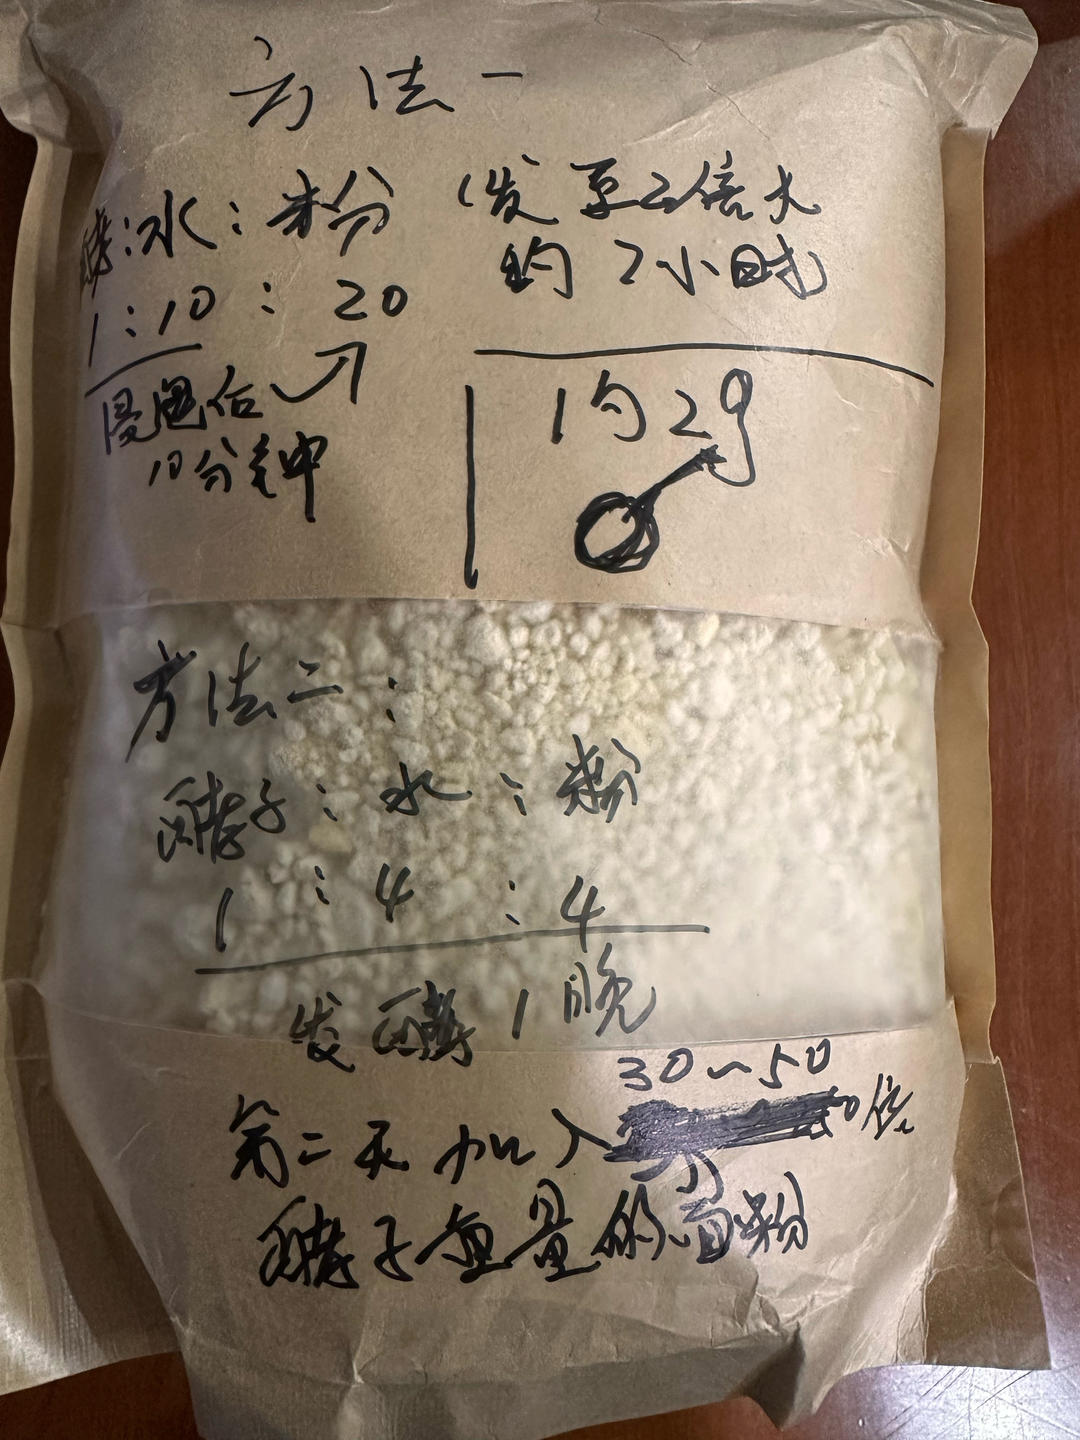 方法一
酵:水:粉
1:10:20
浸泡后
10分钟
(发至2倍大
约7小时
1勺2g
方法二:
酵子:水:粉
1:4:4
发酵1晚
30~50
第二天加入 倍
酵子重量的面粉